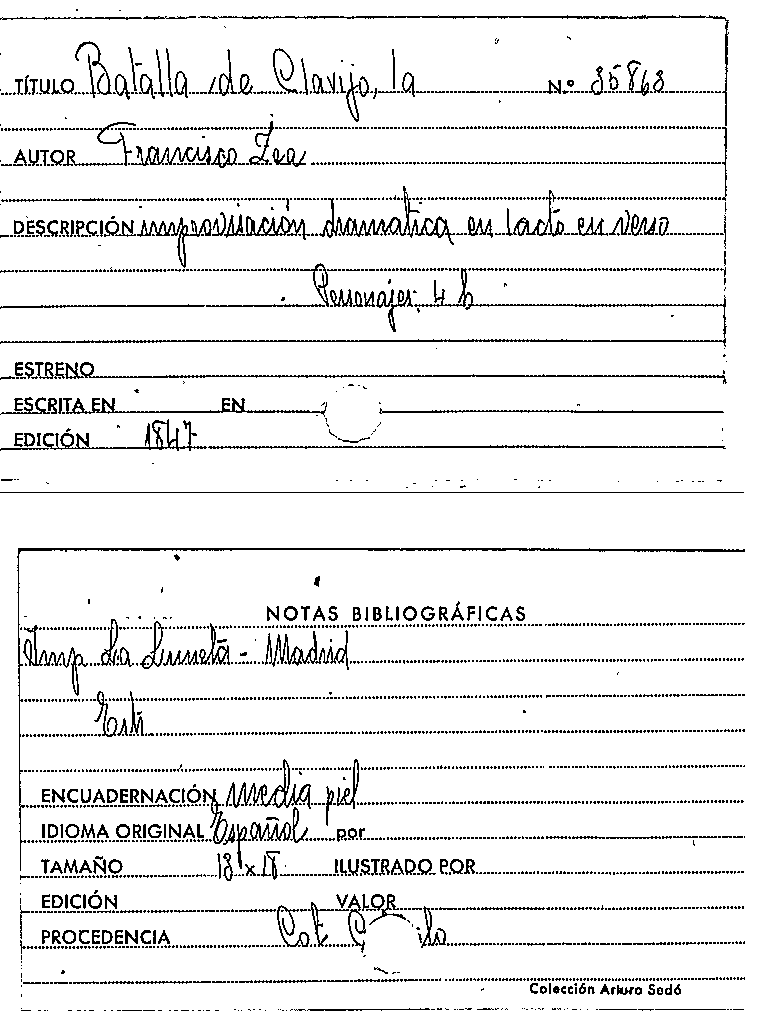 TÍTULO Batalla de Clavijo, la N.º 35868
AUTOR Francisco Zea
DESCRIPCIÓN improvisación dramatica en 1 acto en verso
Personajes, 4 h
ESTRENO
ESCRITA EN EN
EDICIÓN 1847
NOTAS BIBLIOGRÁFICAS
Imp La Luneta - Madrid
ENCUADERNACIÓN media piel
IDIOMA ORIGINAL Español por
TAMAÑO ILUSTRADO POR
EDICIÓN VALOR
PROCEDENCIA Cot
Colección Arturo Sedó